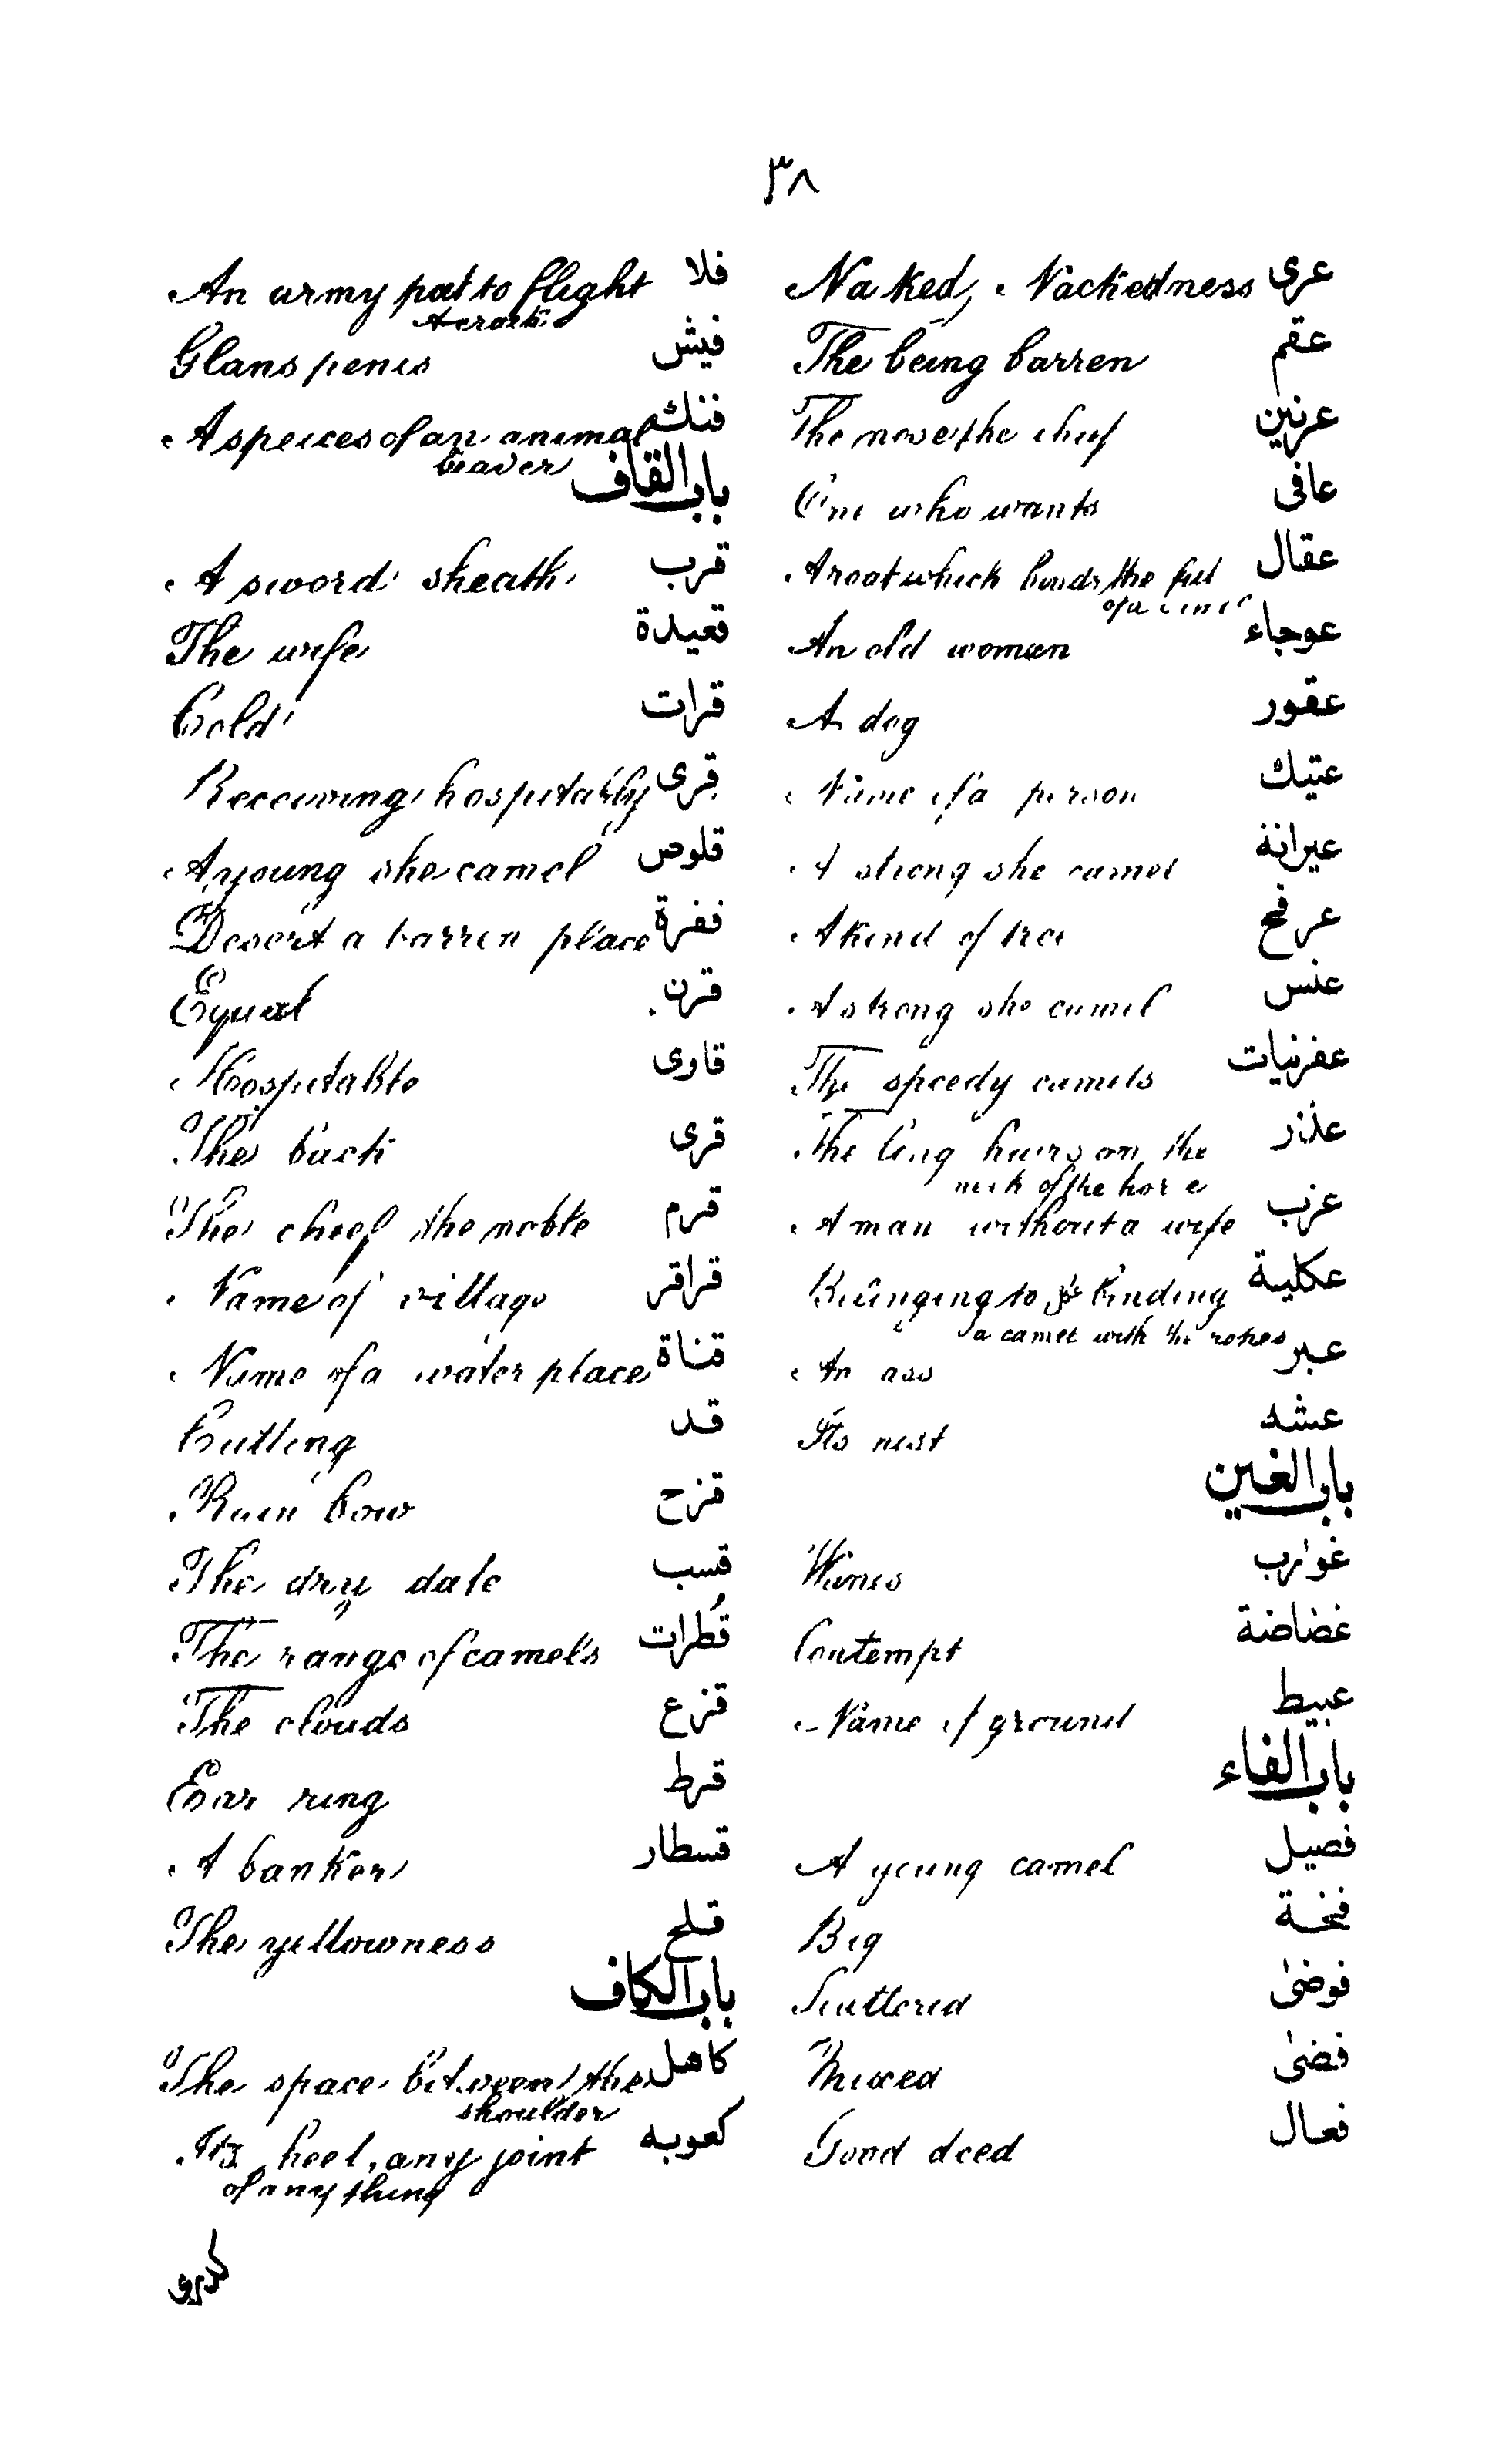 ٣٨
عرى Naked, Nackedness
عقم The being barren
عرنين The nose the chief
عافى One who wants
عقال A roat which binds the feet
of a camel
عوجاء An old woman
عقور A dog
عتيك Name of a person
عيرانة A strong she camel
عرفج A kind of tree
عنس A strong she camel
عفرنيات The speedy camels
عذر The long hairs on the
neck of the horse
عزب A man without a wife
عكلية Belonging to عكل binding
a camel with the ropes
عير An ass
عشه Its nest
باب الغين
غوارب Waves
غضاضة Contempt
غبيط Name of ground
باب الفاء
فصيل A young camel
فخمة Big
فوضىٰ Scattered
فضىٰ Mixed
فعال Good deed
فلا An army put to flight
فيش Glans penis
فنك A speices of an animal
beaver
باب القاف
قرب A sword sheath
قعيدة The wife
قرات Cold
قرى Receiving hospitably
قلوص A young she camel
قفرة Desert a barren place
قرن Equal
قارى Hospitable
قرى The back
قرم The chief the noble
قراقر Name of village
قناة Name of a water place
قد Cutting
قزح Rain bow
قسب The dry date
قُطرات The range of camels
قزع The clouds
قرط Ear ring
قسطار A banker
قلح The yellowness
باب الكاف
كاهل The space between the
shoulder
كعوبه Its heel, any joint
of any thing